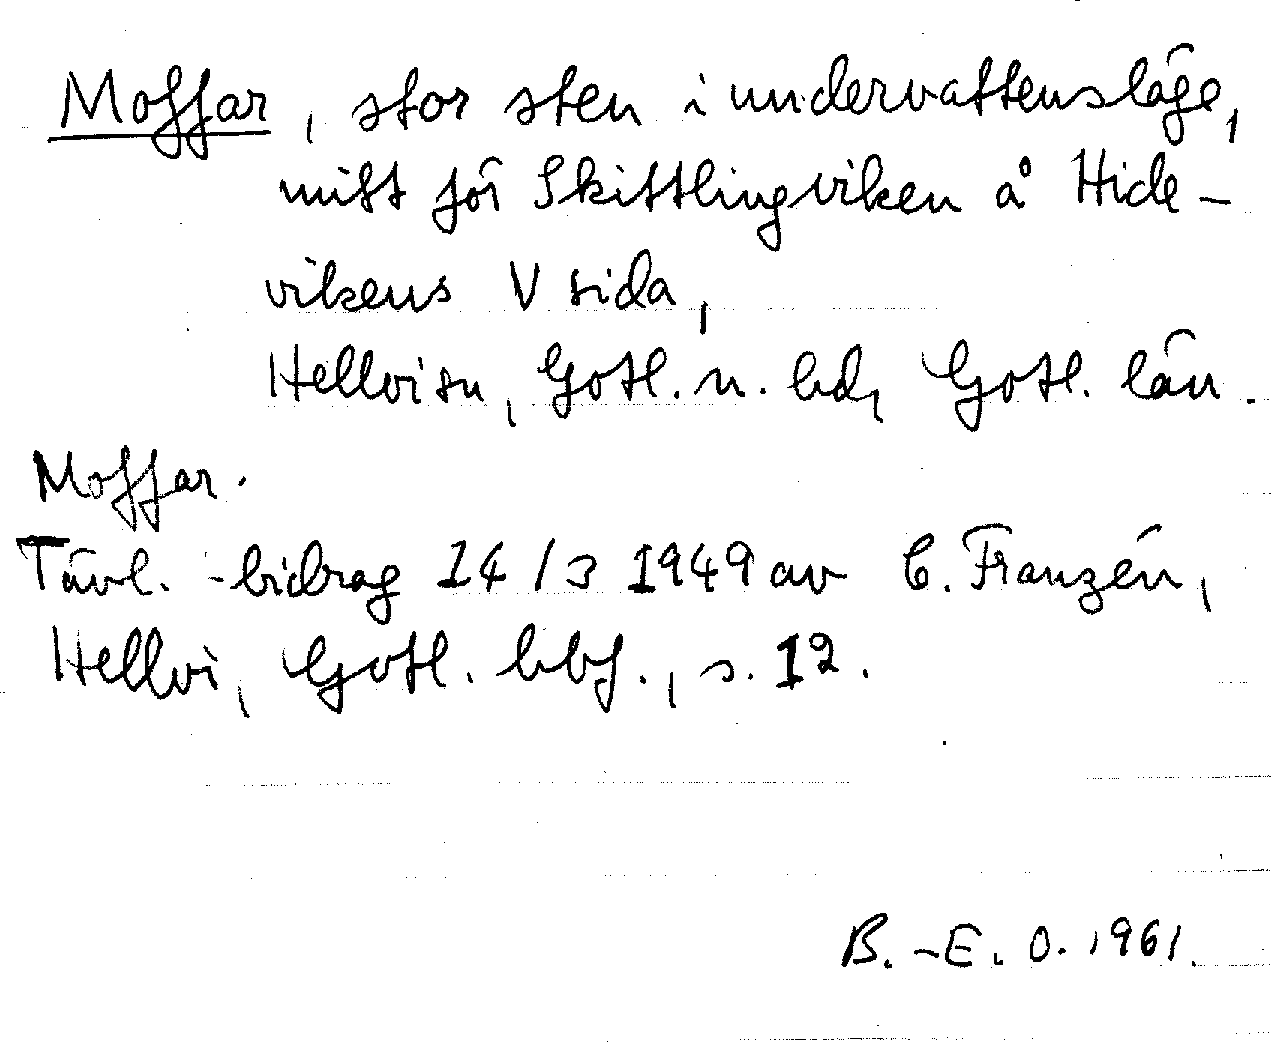 Moffar, stor sten i undervattensläge,
mitt för Skittlingviken å Hide-
vikens V sida,
Hellvi sn, Gotl. n. hd, Gotl. län.
Moffar.
Tävl.-bidrag 14/3 1949 av C. Franzén,
Hellvi, Gotl. hbf., s. 12.
B.-E. O. 1961.